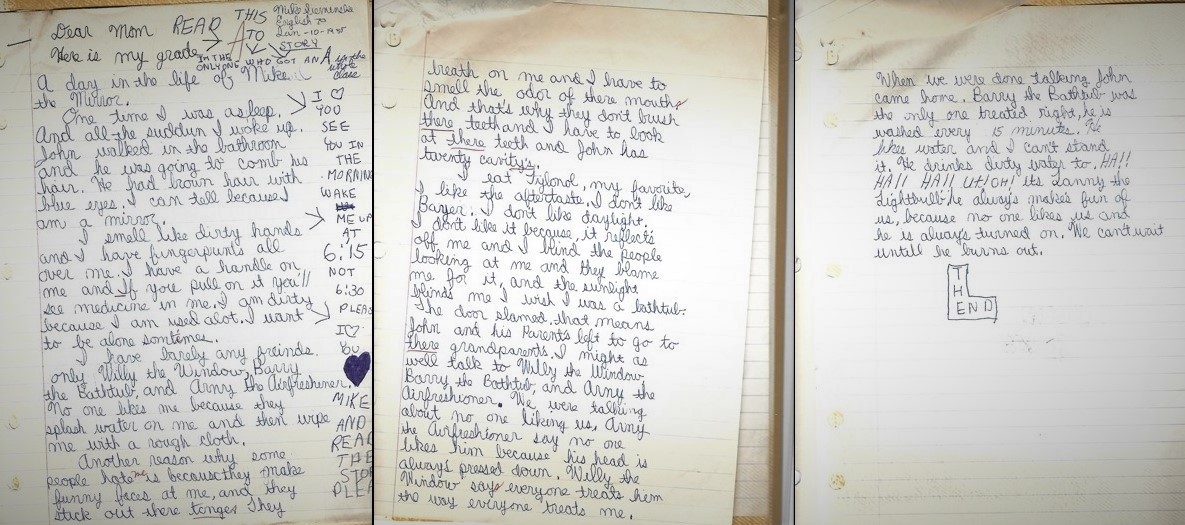 Dear Mom READ THIS
TO
STORY
English 20
Jan-10-1985
Here is my grade → A
IM THE ONLY ONE WHO GOT AN A in the whole class
A day in the life of Mike
the Mirror.
One time I was asleep.
And all the suddun I woke up.
John walked in the bathroom
and he was going to comb his
hair. He had brown hair with
blue eyes. I can tell because I
am a mirror.
I smell like dirty hands
and I have fingerpunts all
over me. I have a handle on
me and If you pull on it you'll
see medicine in me. I am dirty
because I am used alot. I want
to be alone somtimes.
I have barely any freinds.
only Willy the Window, Barry
the Bathtub, and Arny the Airfreshiner.
No one likes me because they
splash water on me and then wipe
me with a rough cloth.
Another reason why some
people hate me is because they make
funny faces at me, and they
stick out there tonges They
I ♡
YOU
SEE
YOU IN
THE
MORNING
WAKE
ME UP
AT
6:15
NOT
6:30
PLEAS
I ♡
YOU
MIKE
AND
READ
THE
STO
PLEA
breath on me and I have to
smell the odor of there mouths
And that's why they don't brush
there teeth and I have to look
at there teeth and John has
twenty cavity's.
I eat Tylonol, my favorite,
I like the aftertaste. I don't like
Bayer. I don't like daylight.
I don't like it because, it reflects
off me and I blind the people
looking at me and they blame
me for it, and the sunlight
blinds me I wish I was a bathtub.
The door slamed. that means
John and his Parents left to go to
there grandparents. I might as
well talk to Willy the Window,
Barry the Bathtub, and Arny the
Airfreshioner. We were talking
about no one liking us. Arny
the Airfreshioner say no one
likes him because his head is
always pressed down. Willy the
Window says everyone treats hem
the way everyone treats me.
When we were done talking John
came home. Barry the Bathtub was
the only one treated right, he is
washed every 15 minutes. He
likes water and I can't stand
it. He drinks dirty water to. HA!!
HA!! HA!! UH! OH! its Lanny the
Lightbulb. he always makes fun of
us, because no one likes us and
he is always turned on. We can't wait
untill he burns out.
THE
END